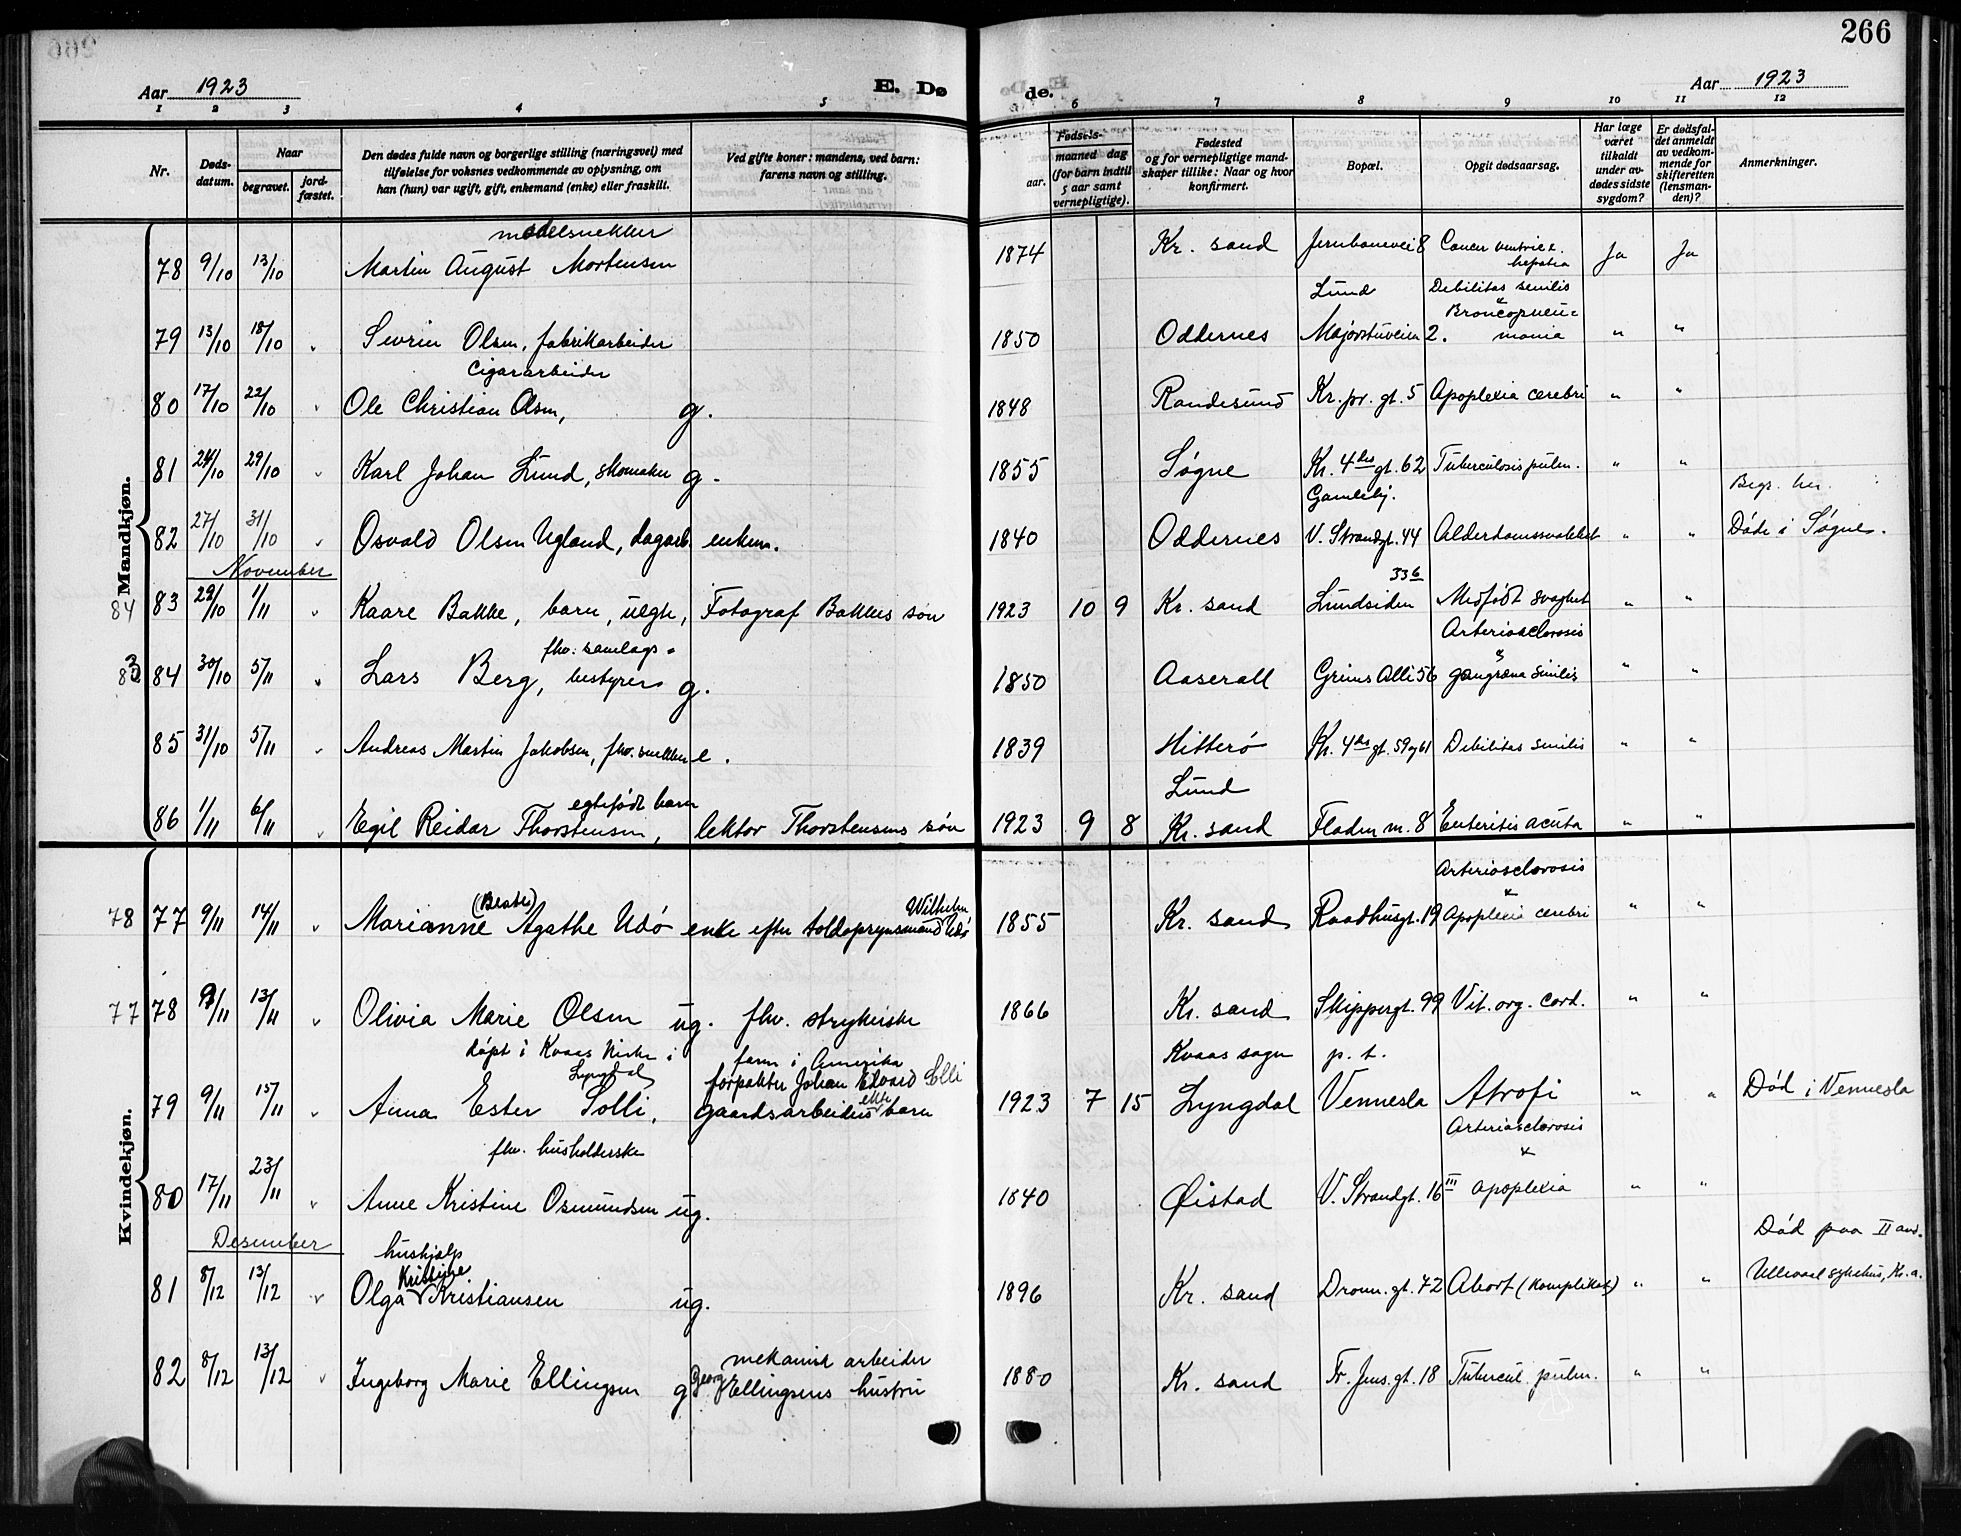 266
Aar 1923 E. Dø de. Aar 1923
1 2 3 4 5 6 7 8 9 10 11 12
Nr.
Døds-datum.
Naar
begravet.
jord-fæstet.
Den dødes fulde navn og borgerlige stilling (næringsvei) med
tilføielse for voksnes vedkommende av oplysning, om
han (hun) var ugift, gift, enkemand (enke) eller fraskilt.
Ved gifte koner: mandens, ved barn:
farens navn og stilling.
Fødsels-
aar.
maaned dag
(for barn indtil
5 aar samt
vernepligtige).
Fødested
og for vernepligtige mand-
skaper tillike: Naar og hvor
konfirmert.
Bopæl.
Opgit dødsaarsag.
Har læge
været
tilkaldt
under av-
dødes sidste
sygdom?
Er dødsfal-
det anmeldt
av vedkom-
mende for
skifteretten
(lensman-
den)?
Anmerkninger.
Mandkjøn.
modelsnekker
78 9/10 13/10 Martin August Mortensen 1874 Kr. sand Jernbanevei 8 Cancer ventric & hepatia Ja Ja
Lund Debilitas senilis &
79 13/10 18/10 " Sevrin Olsen, fabrikarbeider 1850 Oddernes Majorstuveien 2. Broncopneu=monia " "
Cigararbeider
80 17/10 22/10 " Ole Christian Olsen, g. 1848 Randesund Kr. pr. gt. 5 Apoplexia cerebri " "
81 24/10 29/10 " Karl Johan Lund, skomaker g. 1855 Søgne Kr. 4des gt. 62 Tuberculosis pulm. " "
Gamlehj. Begr. her.
82 27/10 31/10 " Osvald Olsen Ugland, dagarb. enkem. 1840 Oddernes V. Strandgt. 44 Alderdomssvakhet " " Døde i Søgne.
November
84 83 29/10 1/11 " Kaare Bakke, barn, uegte, Fotograf Bakkes søn 1923 10 9 Kr. sand Lundsiden 336 Medfødt svaghet " "
fhv. samlags= Arteriosclerosis &
83 84 30/10 5/11 " Lars Berg, bestyrer g. 1850 Aaserall Grims Alli 56 gangræna senilis " "
85 31/10 5/11 " Andreas Martin Jakobsen, fhv. snekker e. 1839 Hitterø Kr. 4des gt. 59 og 61 Debilitas senilis " "
egtefødt barn Lund
86 1/11 6/11 " Egil Reidar Thorstensen, lektor Thorstensens søn 1923 9 8 Kr. sand Fladen m. 8 Enteritis acuta " "
Kvindekjøn.
(Beate) Wilhelm Arteriosclerosis &
78 77 9/11 14/11 " Marianne Agathe Udø enke efter toldopsynsmand Udø 1855 Kr. sand Raadhusgt. 19 Apoplexia cerebri " "
77 78 9/11 13/11 " Olivia Marie Olsen ug. fhv. strykerske 1866 Kr. sand Skippergt. 99 Vit. org. cord. " "
døpt i Kvaas kirke i Lyngdal farm i Amerika Kvaas sogn p. t.
forpakter Johan Edvard Solli
79 9/11 15/11 " Anna Ester Solli, gaardsarbeiders ekte barn 1923 7 15 Lyngdal Vennesla Atrofi " " Død i Vennesla
fhv. husholderske Arteriosclerosis &
80 17/11 23/11 " Anne Kristine Osmundsen ug. 1840 Øistad V. Strandgt. 16 III apoplexia " "
Desember
hushjælp Kristine Død paa II avd.
81 8/12 13/12 " Olga Kristiansen ug. 1896 Kr. sand Dronn. gt. 72 Abort (komplikat) " " Ullevaal sykehus, Kr.a.
mekanisk arbeider
82 8/12 13/12 " Ingeborg Marie Ellingsen g Georg Ellingsens hustru 1880 Kr. sand Fr. Jens. gt. 18 Tubercul. pulm. " "